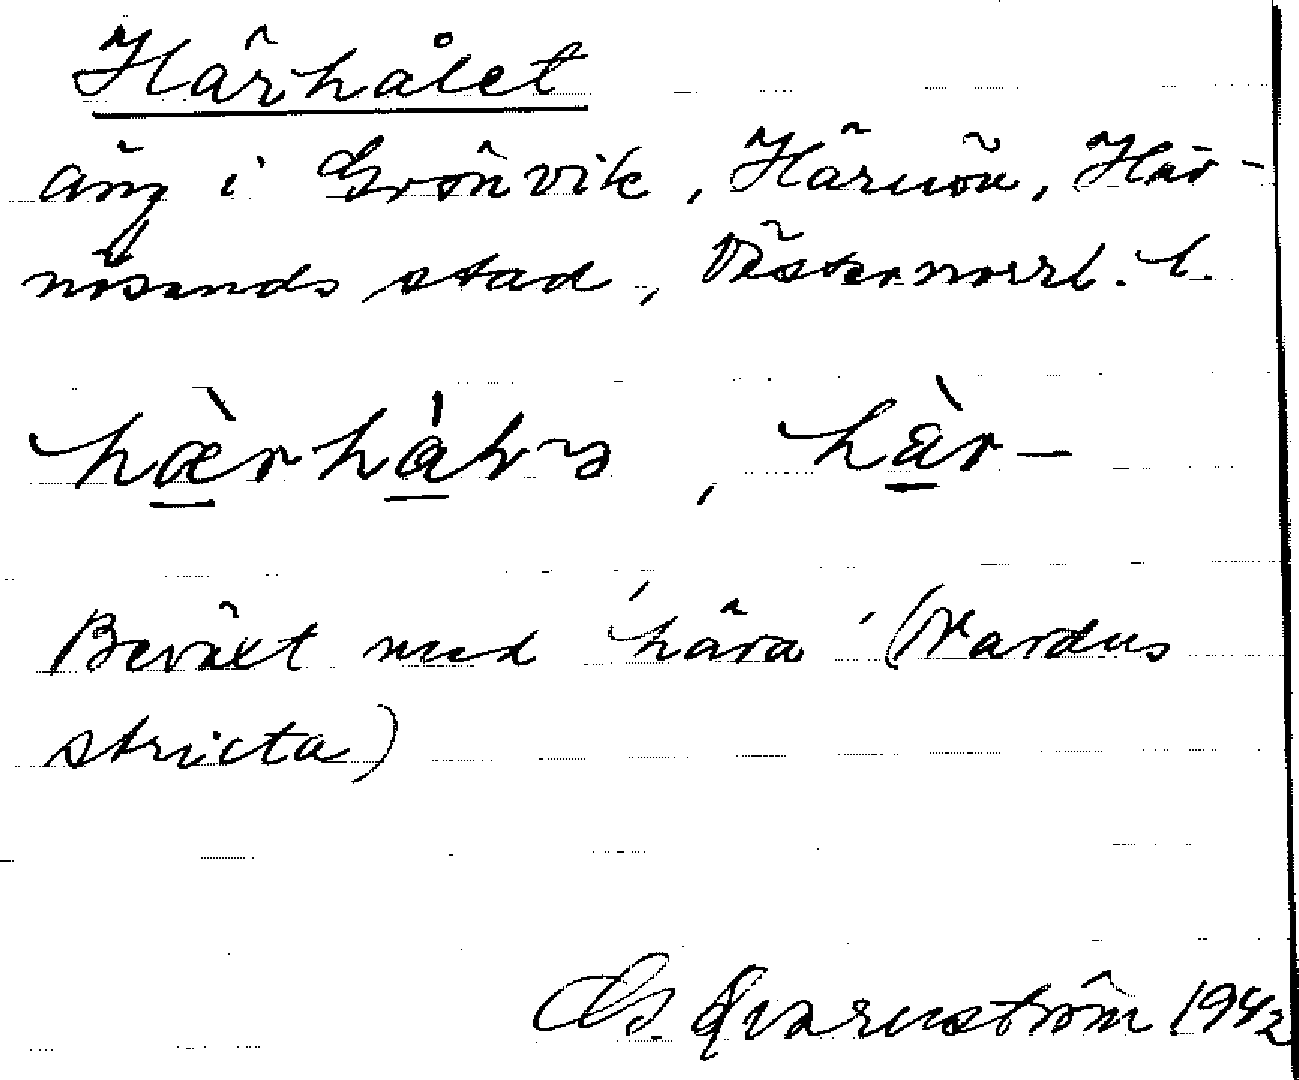 Härhålet
äng i Grönvik, Härnön, Här-
nösands stad, Västernorrl. l.
hæ̀rhàlə, hàr-
Beväxt med 'hära' (Nardus
stricta)
Qvarnström 1942